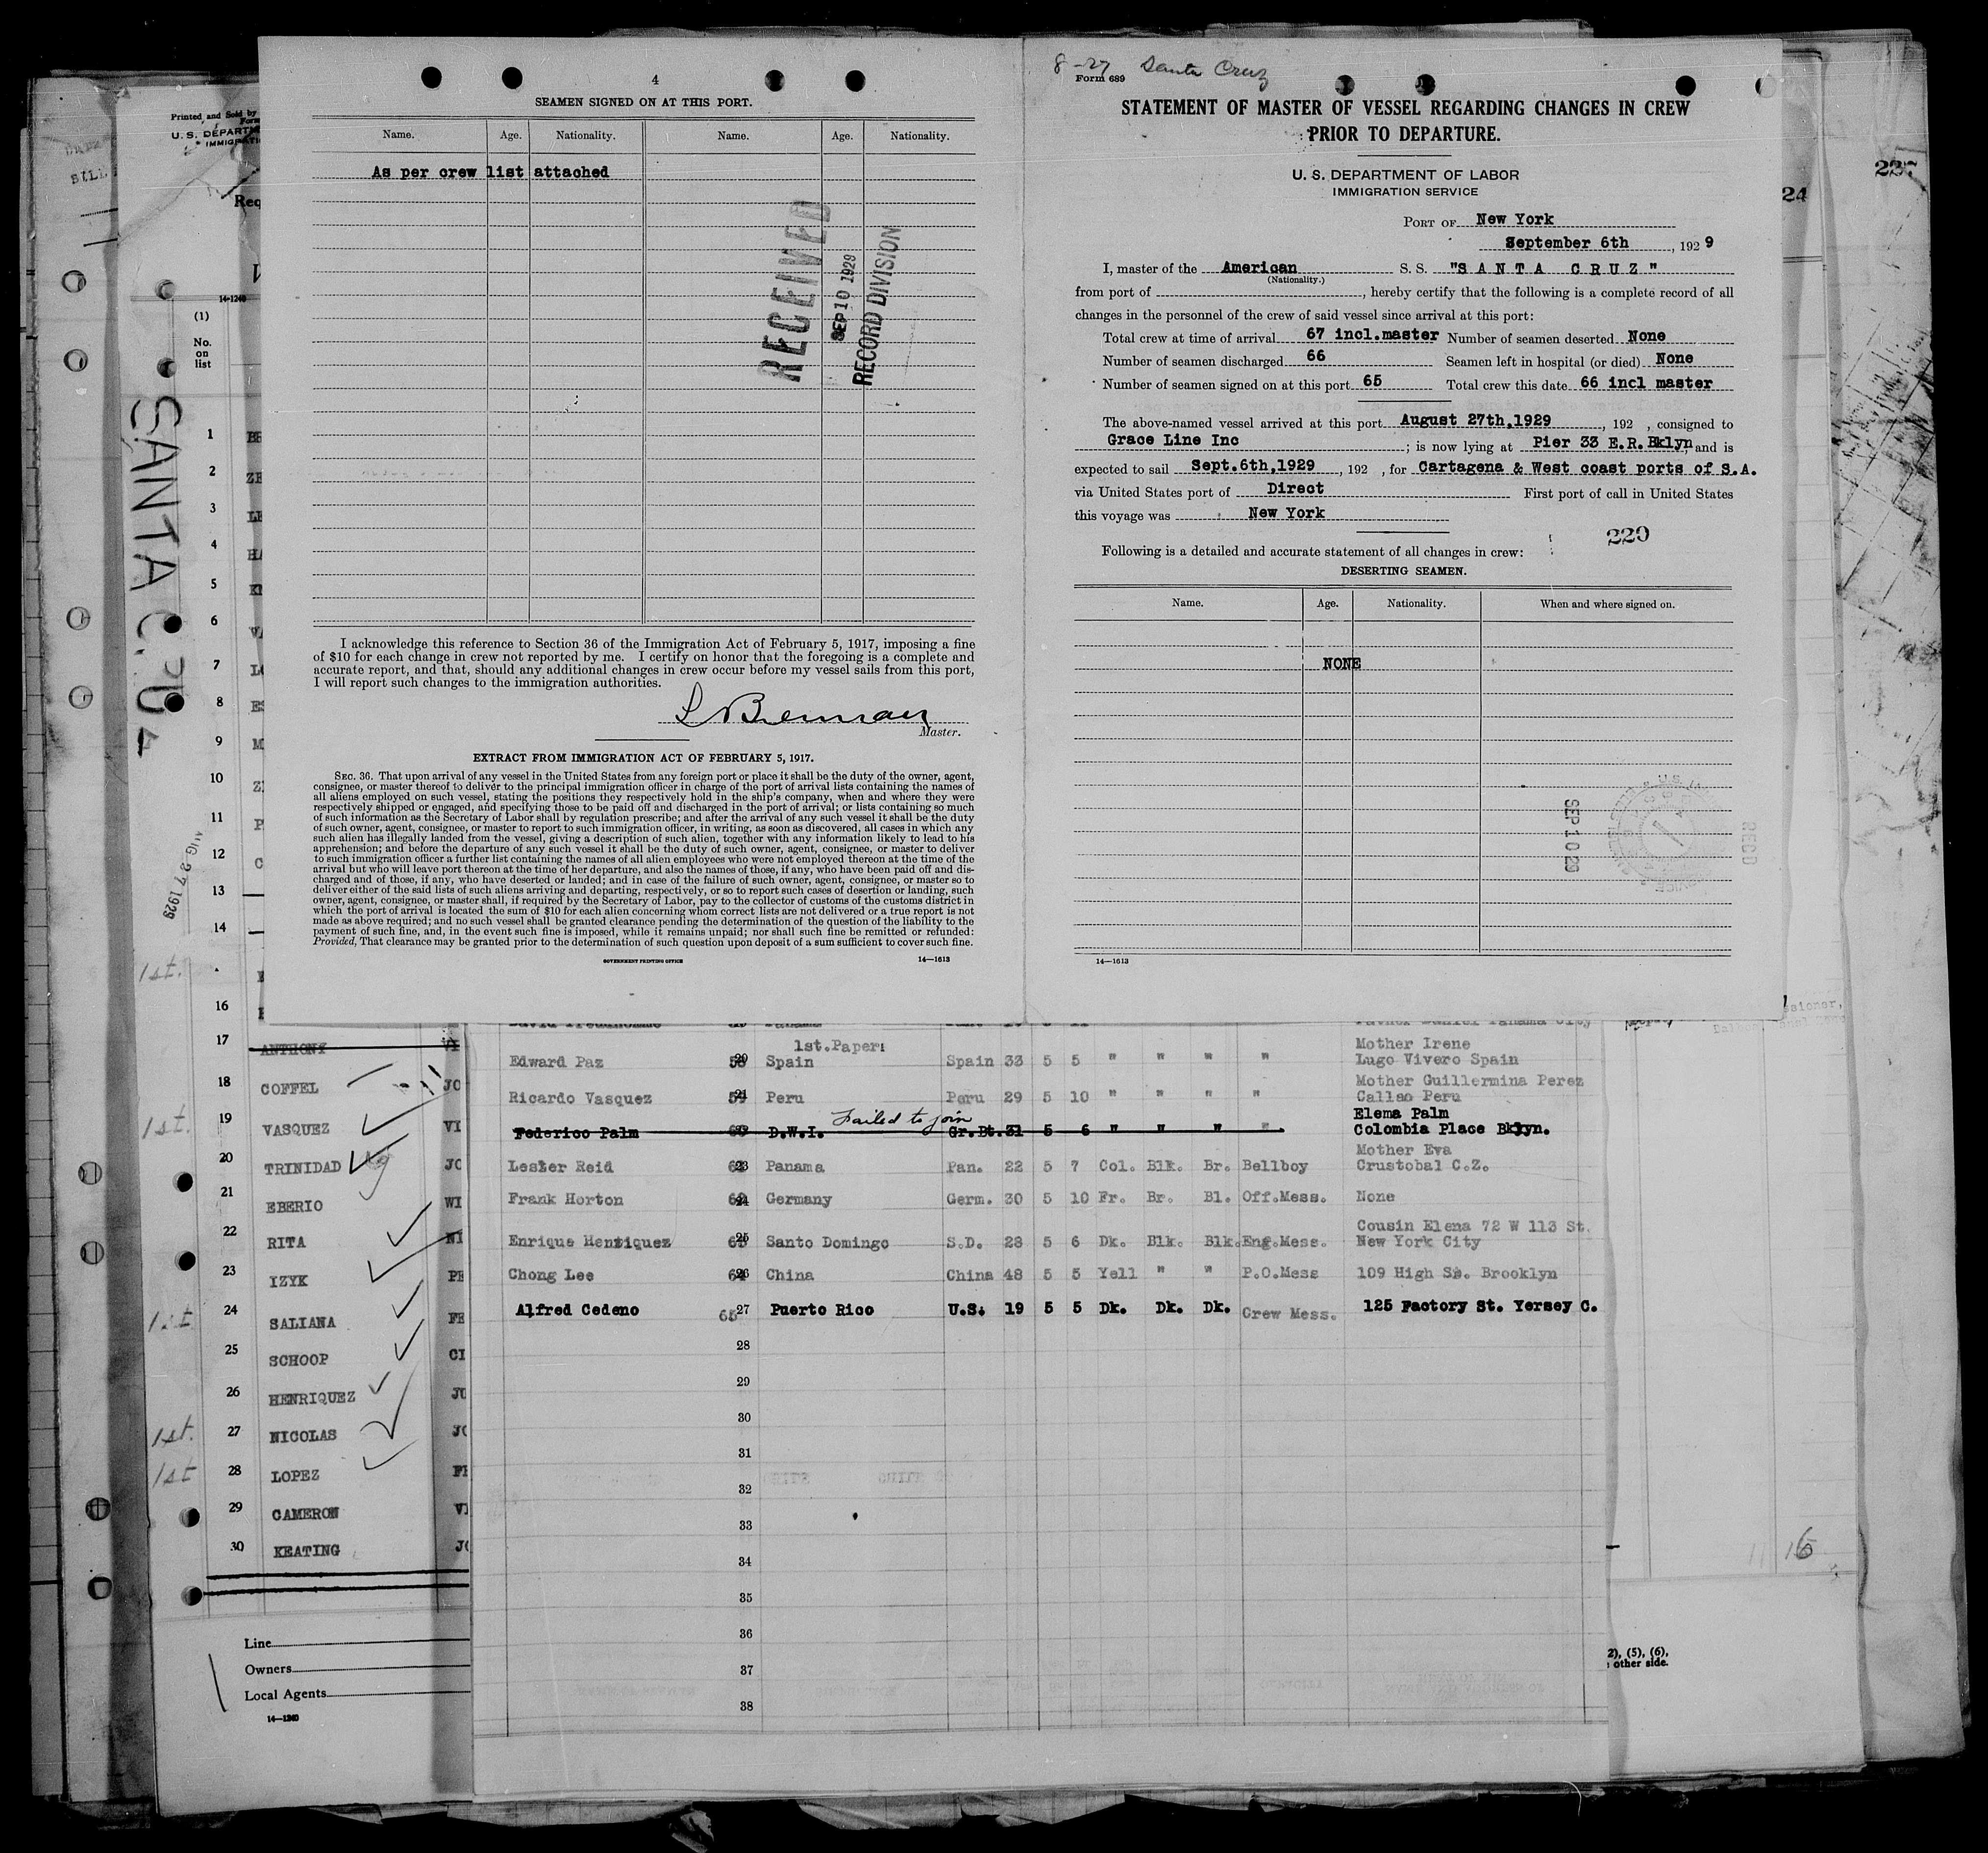 4
SEAMEN SIGNED ON AT THIS PORT.
Name. Age. Nationality. Name. Age. Nationality.
As per crew list attached
RECEIVED
SEP 10 1929
RECORD DIVISION
I acknowledge this reference to Section 36 of the Immigration Act of February 5, 1917, imposing a fine
of $10 for each change in crew not reported by me. I certify on honor that the foregoing is a complete and
accurate report, and that, should any additional changes in crew occur before my vessel sails from this port,
I will report such changes to the immigration authorities.
L Brennan
Master.
EXTRACT FROM IMMIGRATION ACT OF FEBRUARY 5, 1917.
SEC. 36. That upon arrival of any vessel in the United States from any foreign port or place it shall be the duty of the owner, agent,
consignee, or master thereof to deliver to the principal immigration officer in charge of the port of arrival lists containing the names of
all aliens employed on such vessel, stating the positions they respectively hold in the ship's company, when and where they were
respectively shipped or engaged, and specifying those to be paid off and discharged in the port of arrival; or lists containing so much
of such information as the Secretary of Labor shall by regulation prescribe; and after the arrival of any such vessel it shall be the duty
of such owner, agent, consignee, or master to report to such immigration officer, in writing, as soon as discovered, all cases in which any
such alien has illegally landed from the vessel, giving a description of such alien, together with any information likely to lead to his
apprehension; and before the departure of any such vessel it shall be the duty of such owner, agent, consignee, or master to deliver
to such immigration officer a further list containing the names of all alien employees who were not employed thereon at the time of the
arrival but who will leave port thereon at the time of her departure, and also the names of those, if any, who have been paid off and dis-
charged and of those, if any, who have deserted or landed; and in case of the failure of such owner, agent, consignee, or master so to
deliver either of the said lists of such aliens arriving and departing, respectively, or so to report such cases of desertion or landing, such
owner, agent, consignee, or master shall, if required by the Secretary of Labor, pay to the collector of customs of the customs district in
which the port of arrival is located the sum of $10 for each alien concerning whom correct lists are not delivered or a true report is not
made as above required; and no such vessel shall be granted clearance pending the determination of the question of the liability to the
payment of such fine, and, in the event such fine is imposed, while it remains unpaid; nor shall such fine be remitted or refunded:
Provided, That clearance may be granted prior to the determination of such question upon deposit of a sum sufficient to cover such fine.
GOVERNMENT PRINTING OFFICE 14—1613
8-27 Santa Cruz
Form 689
STATEMENT OF MASTER OF VESSEL REGARDING CHANGES IN CREW
PRIOR TO DEPARTURE.
U. S. DEPARTMENT OF LABOR
IMMIGRATION SERVICE
PORT OF New York
September 6th, 1929
I, master of the American S. S. "SANTA CRUZ"
(Nationality.)
from port of , hereby certify that the following is a complete record of all
changes in the personnel of the crew of said vessel since arrival at this port:
Total crew at time of arrival 67 incl.master Number of seamen deserted None
Number of seamen discharged 66 Seamen left in hospital (or died) None
Number of seamen signed on at this port 65 Total crew this date 66 incl master
The above-named vessel arrived at this port August 27th,1929, 192 , consigned to
Grace Line Inc ; is now lying at Pier 33 E.R. Bklyn, and is
expected to sail Sept.6th,1929, 192 , for Cartagena & West coast ports of S.A.
via United States port of Direct First port of call in United States
this voyage was New York
220
Following is a detailed and accurate statement of all changes in crew:
DESERTING SEAMEN.
Name. Age. Nationality. When and where signed on.
NONE
SEP 10 29
RECD
14—1613
237
24
Printed and Sold by
Form
U. S. DEPARTM
IMMIGRATI
BILL
Req
14-1240
(1)
No.
on
list
SANTA CRUZ
AUG 27 1929
1
2
3
4
5
6
7
8
9
10
11
12
13
14
1st.
16
17 ANTHONY
18 COFFEL JO
1st. 19 VASQUEZ VI
20 TRINIDAD JO
21 EBERIO WI
22 RITA NI
23 IZYK PE
1st 24 SALIANA FE
25 SCHOOP CI
26 HENRIQUEZ JO
1st. 27 NICOLAS JO
1st 28 LOPEZ FI
29 CAMERON VI
30 KEATING JO
Line
Owners
Local Agents
14—1240
1st.Paper: Mother Irene
Edward Paz 20 Spain Spain 33 5 5 " " " " Lugo Vivero Spain
Mother Guillermina Perez
Ricardo Vasquez 21 Peru Peru 29 5 10 " " " Callao Peru
Failed to join Elema Palm
Federico Palm D.W.I. Gr.Bt. 31 5 6 " " " " Colombia Place Bklyn.
Mother Eva
Lester Reid 23 Panama Pan. 22 5 7 Col. Blk. Br. Bellboy Crustobal C.Z.
Frank Horton 24 Germany Germ. 30 5 10 Fr. Br. Bl. Off.Mess. None
Cousin Elena 72 W 113 St.
Enrique Henriquez 25 Santo Domingo S.D. 23 5 6 Dk. Blk. Blk. Eng.Mess. New York City
Chong Lee 26 China China 48 5 5 Yell " " P.O.Mess 109 High St. Brooklyn
Alfred Cedeno 65 27 Puerto Rico U.S. 19 5 5 Dk. Dk. Dk. Crew Mess. 125 Factory St. Yersey C.
28
29
30
31
32
33
34
35
36
37
38
2), (5), (6),
other side.